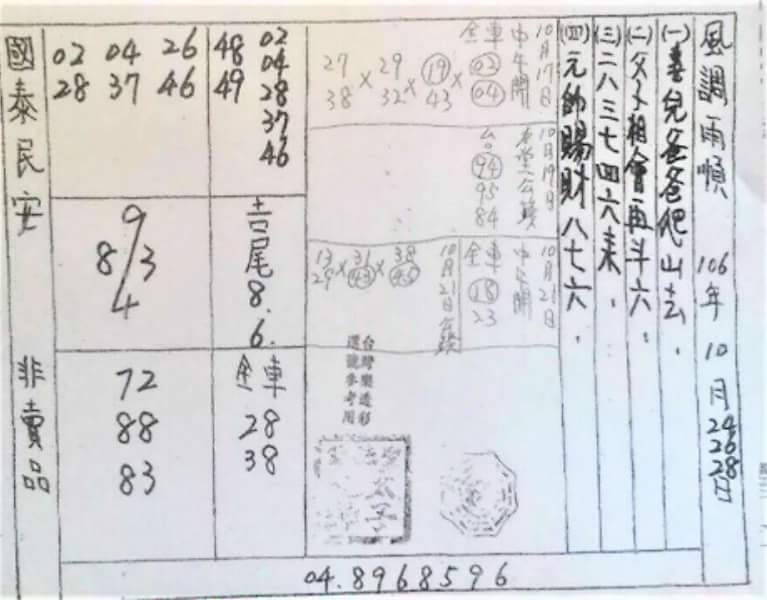 風調雨順 106年 10月24 26 28日
(一)喜兒爸爸爬山去.
(二)父子相會再斗六.
(三)二八三七四六来.
(四)元帥賜財八七六.
10月17日
中午開
全車
02
04
19
43
×
29
32
×
27
38
×
10月19日
94
95
84
10月21日
中午開
全車
18
23
10月21日
38
×
31
×
13
29
02
04
28
37
46
48
49
吉尾8.6.
全車
28
38
02 04 26
28 37 46
9
8/3
4
72
88
83
國泰民安 非賣品
台灣樂透彩
選號參考用
太子
04.8968596